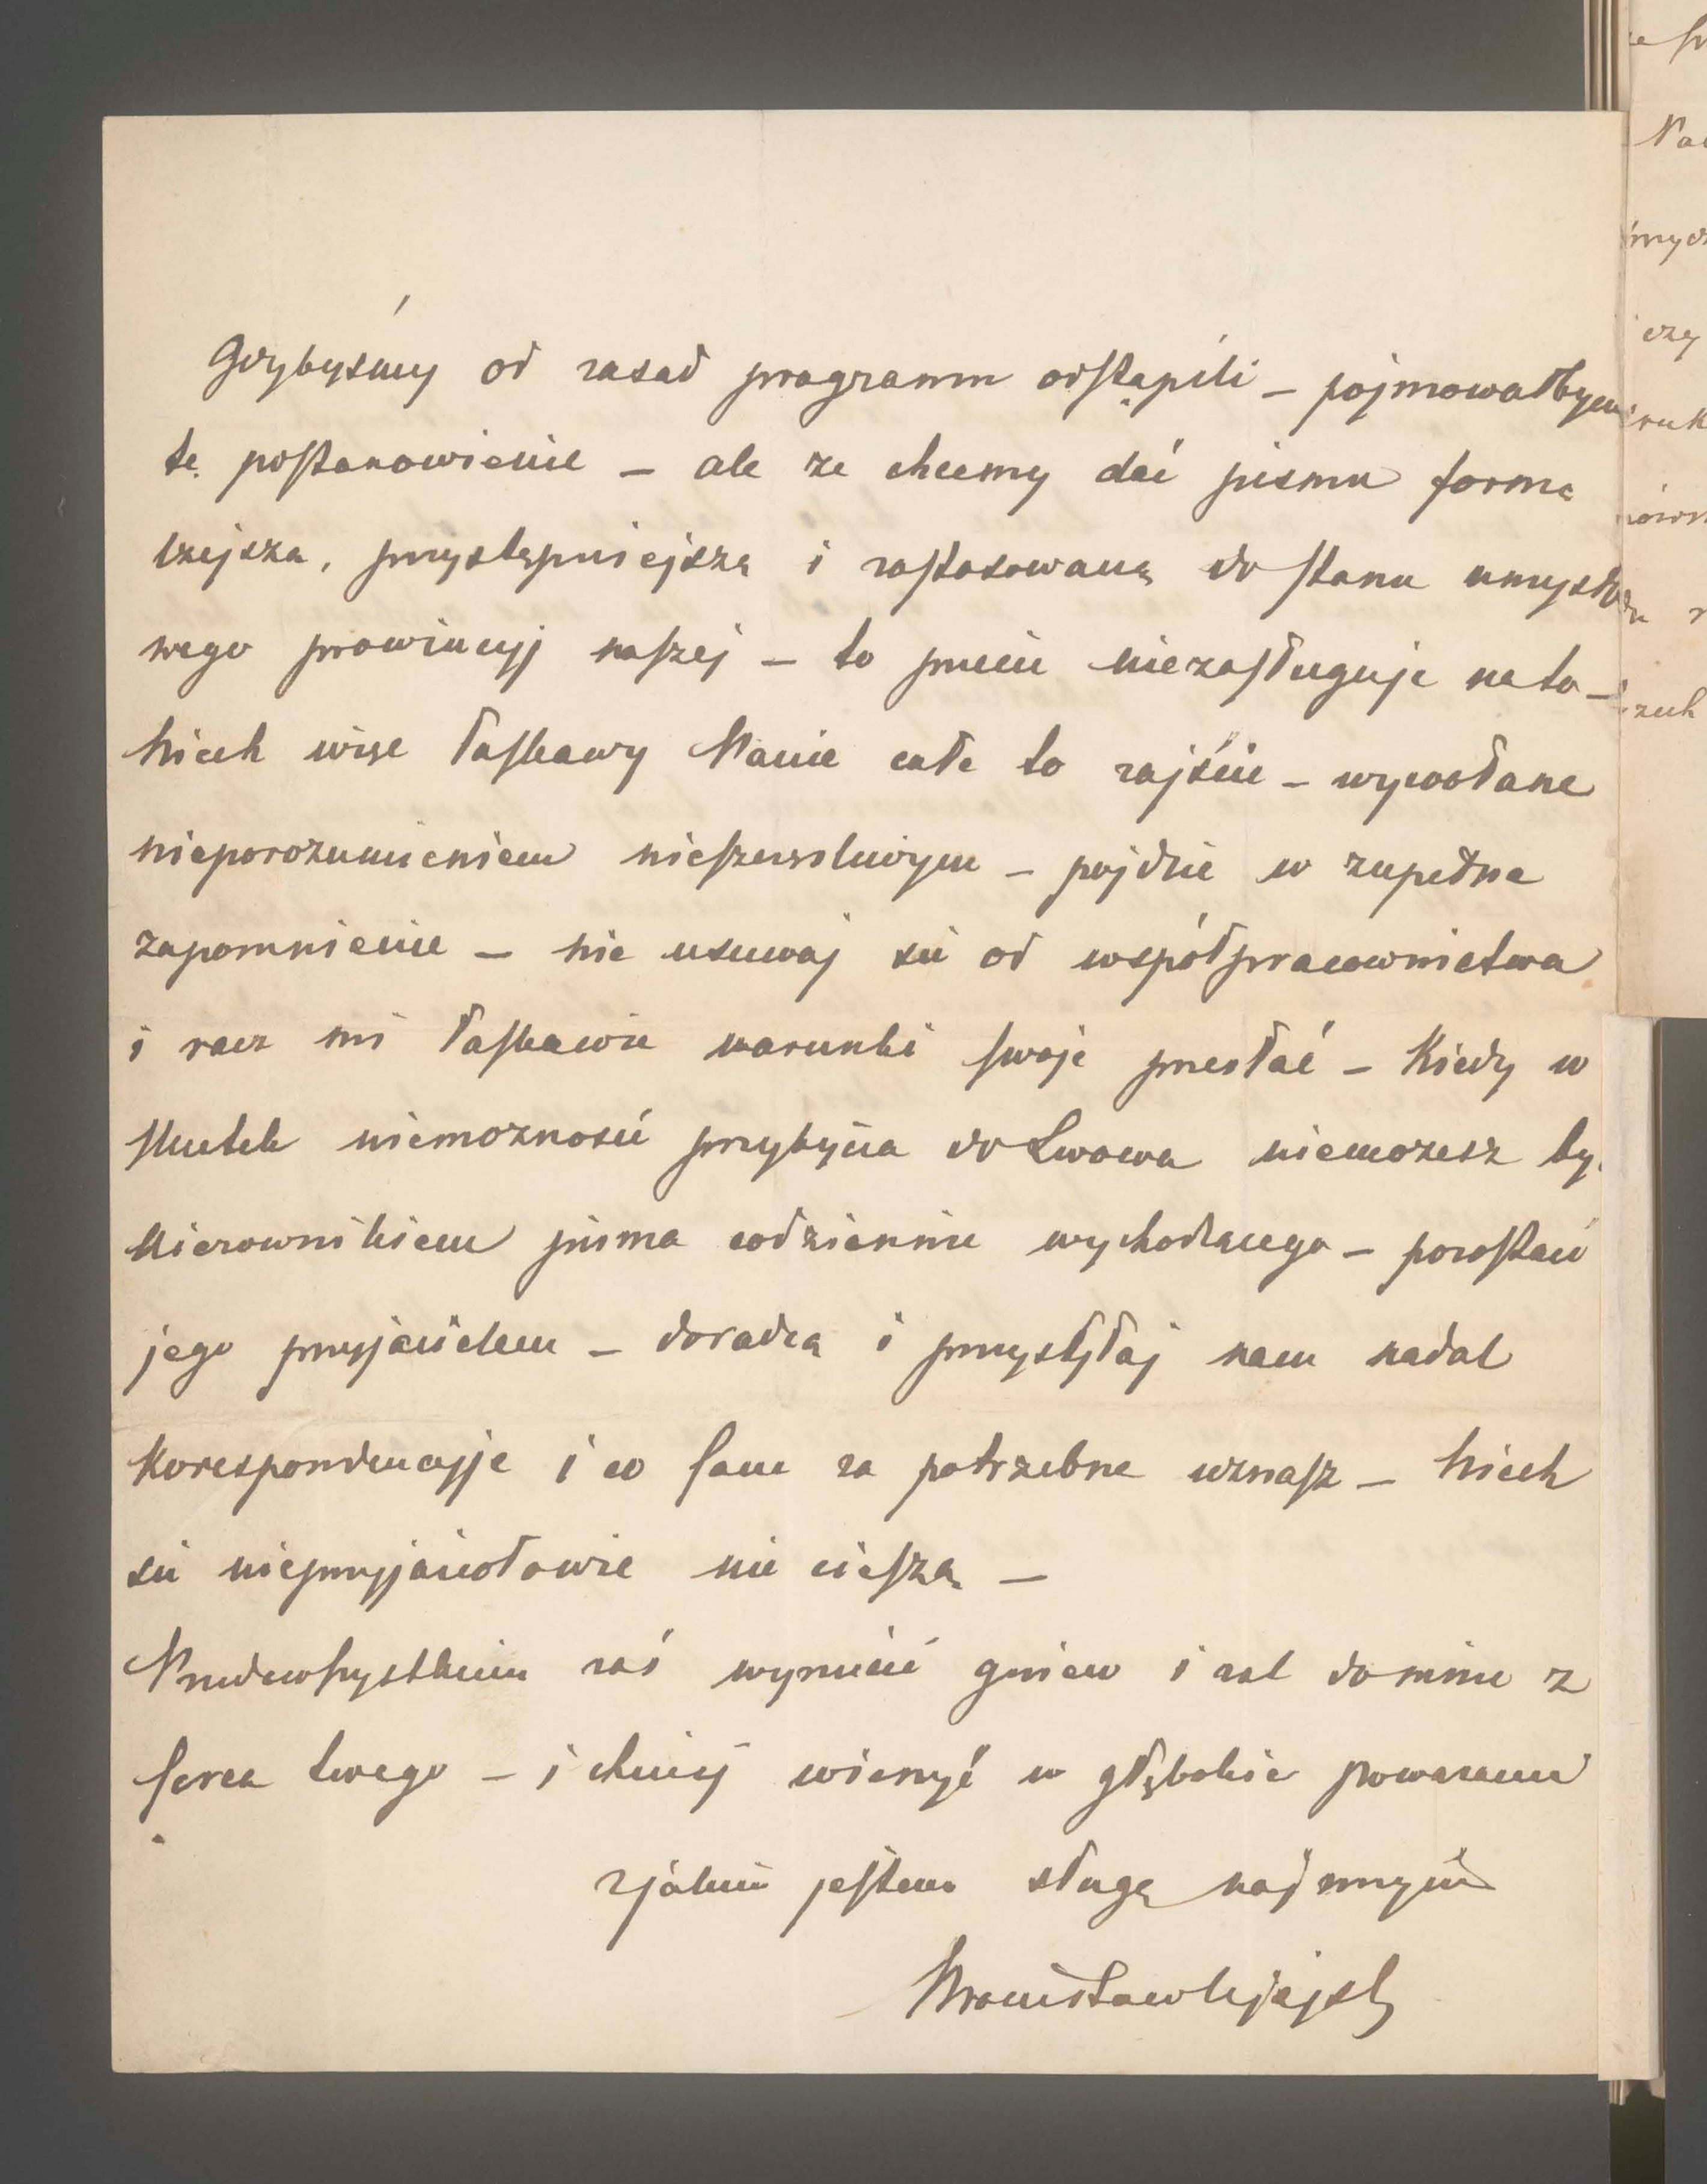 Gdybyśmy od zasad programu odstąpili – pojmowałbym
te postanowienie – ale ze chcemy dać pismu formę
lzejsza, przystępniejszą i zastosowaną do stanu umysło
wego prowincyj naszej – to przecie niezasługuje na to –
Niech więc łaskawy Panie całe to zajście – wywołane
nieporozumieniem nieszczęśliwym – pojdzie w zupełne
zapomnienie – nie usuwaj się od współpracownictwa
i racz mi łaskawie warunki swoje przesłać – Kiedy w
skutek niemozności przybycia do Lwowa niemozesz by
Kierownikiem pisma codziennie wychodzącego – pozostań
jego przyjacielem – doradcą i przysyłaj nam nadal
Korespondencyje i co sam za potrzebne uznasz – Niech
się nieprzyjaciołowie nie cieszą –
Przedewszystkiem zaś wyrzuć gniew i zal do mnie z
serca twego – i chciej wierzyć w głębokie powazanie
z jakim jestem sługą najniższym
ze
Na
czy